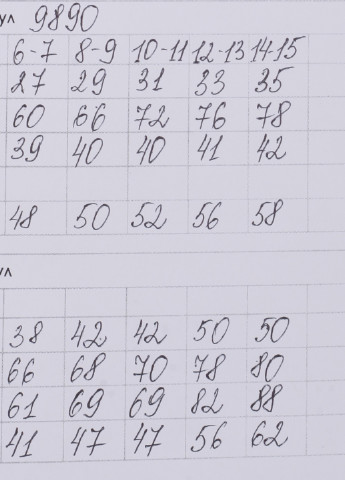 ул 9890
6-7 8-9 10-11 12-13 14-15
27 29 31 33 35
60 66 72 76 78
39 40 40 41 42
48 50 52 56 58
ул
38 42 42 50 50
66 68 70 78 80
61 69 69 82 88
41 47 47 56 62